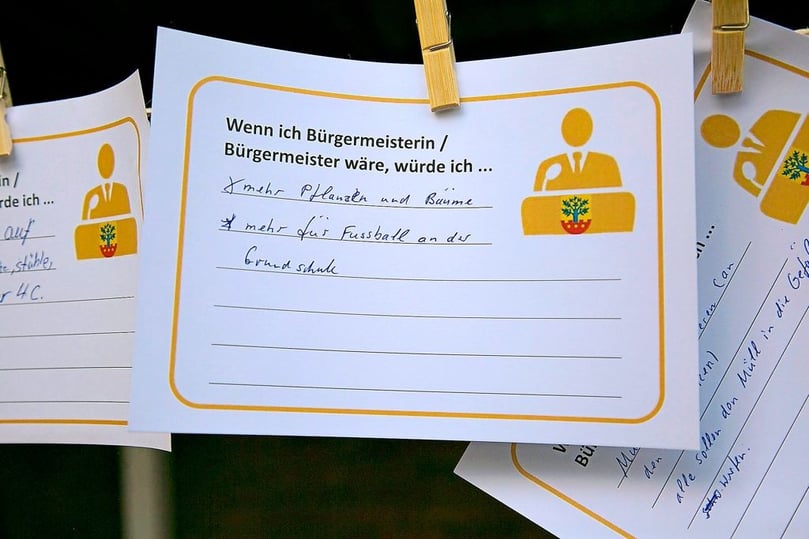 n /
rde ich ...
auf
te, stühle,
r 4C.
Wenn ich Bürgermeisterin /
Bürgermeister wäre, würde ich ...
x mehr Pflanzen und Bäume
x mehr für Fussball an der
Grundschule
alle sollen den Müll in die
werfen.